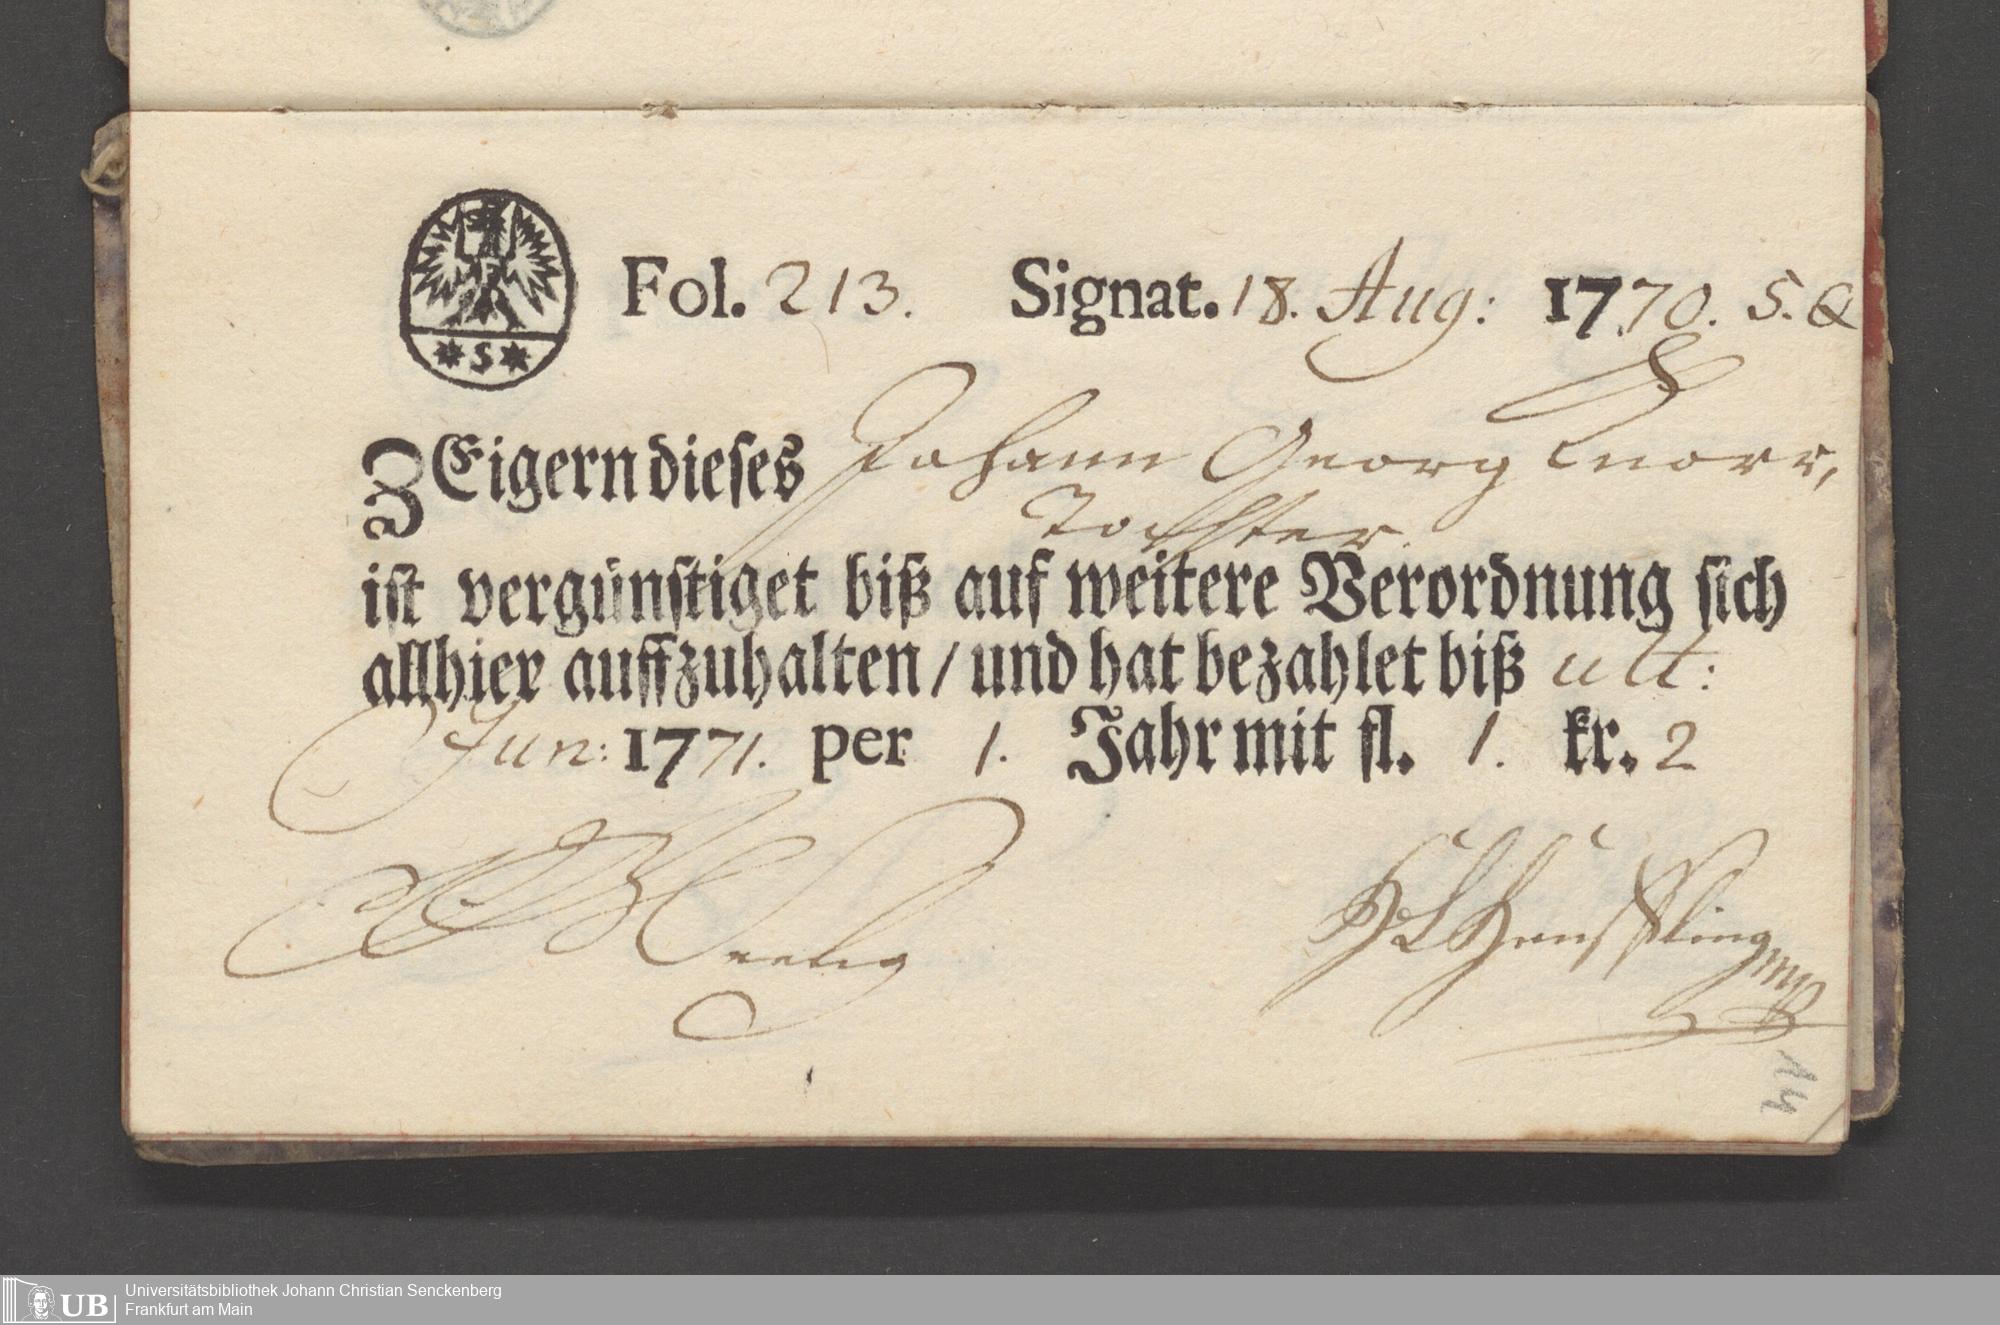 * S *
Fol. 213. Signat. 18. Aug: 1770. S. Q
ZEigern dieses Johann Georg Knorr,
Tochter.
ist vergünstiget biß auf weitere Verordnung sich
allhier auffzuhalten / und hat bezahlet biß ult:
Jun: 1771. per 1. Jahr mit fl. 1. kr. 2
14
UB
Universitätsbibliothek Johann Christian Senckenberg
Frankfurt am Main